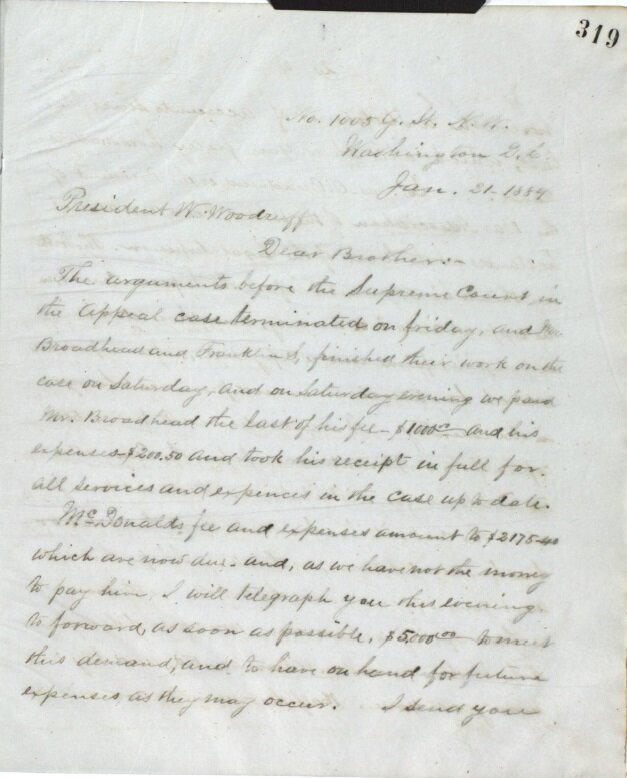 319
No. 1005 G. St. N. W.
Washington D.C.
Jan. 21. 1889
President W. Woodruff
Dear Brother:-
The arguments before the Supreme Court, in
the appeal case terminated on friday, and Mr.
Broadhead and Franklin S, finished their work on the
case on Saturday, and on Saturday evening we paid
Mr. Broadhead the last of his fee - $1000.00 and his
expenses - $200.50 and took his receipt in full for
all services and expences in the case up to date.
McDonalds fee and expenses amount to $2175.40
which are now due - and, as we have not the money
to pay him, I will telegraph you this evening
to forward, as soon as possible, $5000.00 to meet
this demand, and to have on hand for future
expenses, as they may occur. I send you